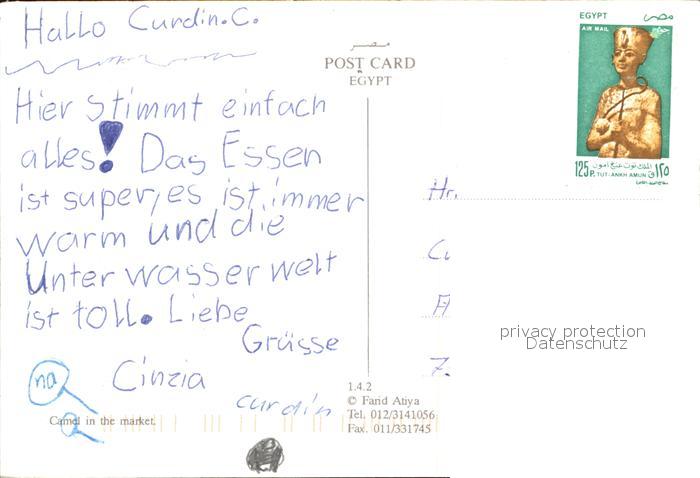 Hallo Curdin.C.
Hier stimmt einfach
alles! Das Essen
ist super, es ist immer
warm und die
Unterwasserwelt
ist toll. Liebe
Grüsse
Cinzia
curdin
na
a
Camel in the market.
مصر
POST CARD
EGYPT
1.4.2
© Farid Atiya
Tel. 012/3141056
Fax. 011/331745
EGYPT مصر
AIR MAIL
الملك توت عنخ آمون
125 P. TUT-ANKH AMUN ١٢٥
Hr.
privacy protection
Datenschutz